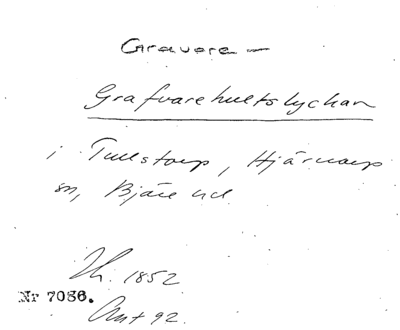 Gravara-
Grafvarehultslyckan
i Tullstorp, Hjärnarp
sn, Bjäre hd.
Th. 1852
Nr 7086.
Ant 92.